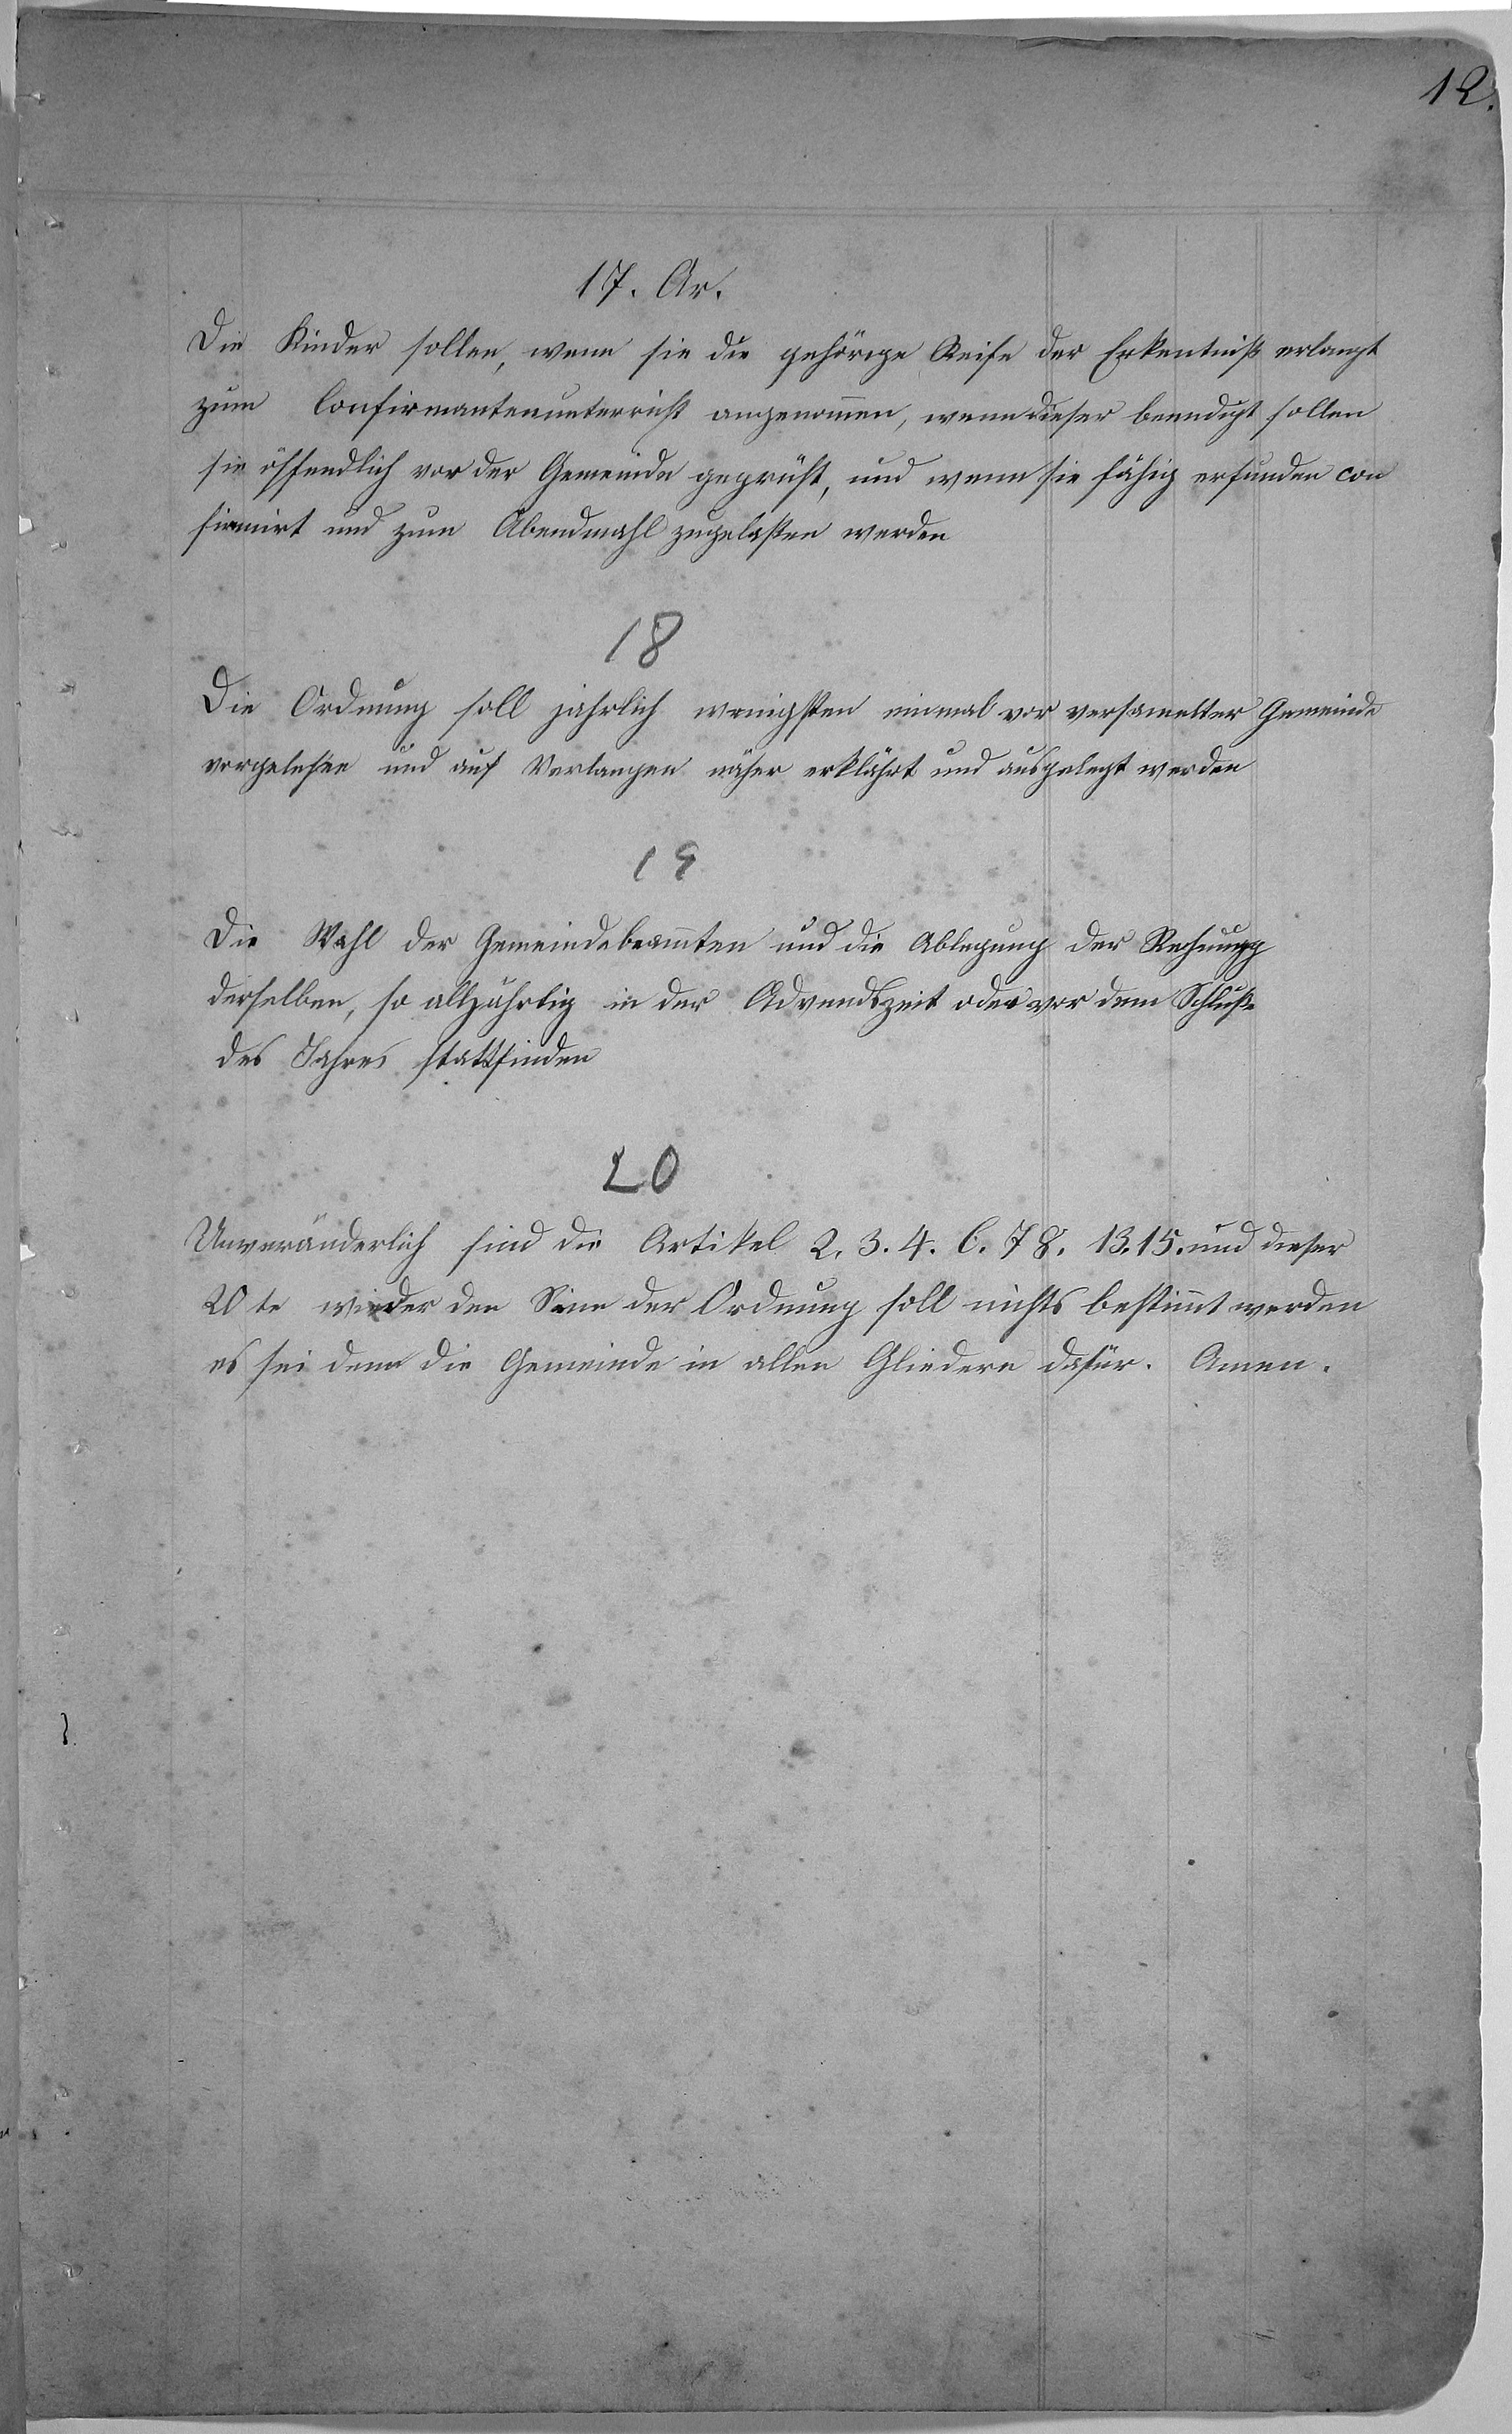 12.
17. Ar.
Die Kinder sollen, wenn sie die gehörige Reife der Erkentniß erlangt
zum Confirmantenunterricht angenom̅en, wenn dieser beendigt sollen
sie öffendlich vor der Gemeinde geprüft, und wenn sie fähig erfunden con
firmirt und zum Abendmahl zugelaßen werden
18
Die Ordnung soll jahrlich wenigsten einmal vor versamelter Gemeinde
vorgelesen und auf Verlangen näher erklährt und ausgelegt werden
19
Die Wahl der Gemeindebeam̅ten und die Ablegung der Rechnung
derselben, so alljährlig in der Advendszeit oder vor dem Schluße
des Jahres stattfinden
20
Unveränderlich sind die Artikel 2. 3. 4. 6. 7 8. 13. 15. und dieser
20 te wieder den Sinn der Ordnung soll nichts bestim̅t werden
es sei denn die Gemeinde in allen Gliedern dafür. Amen.